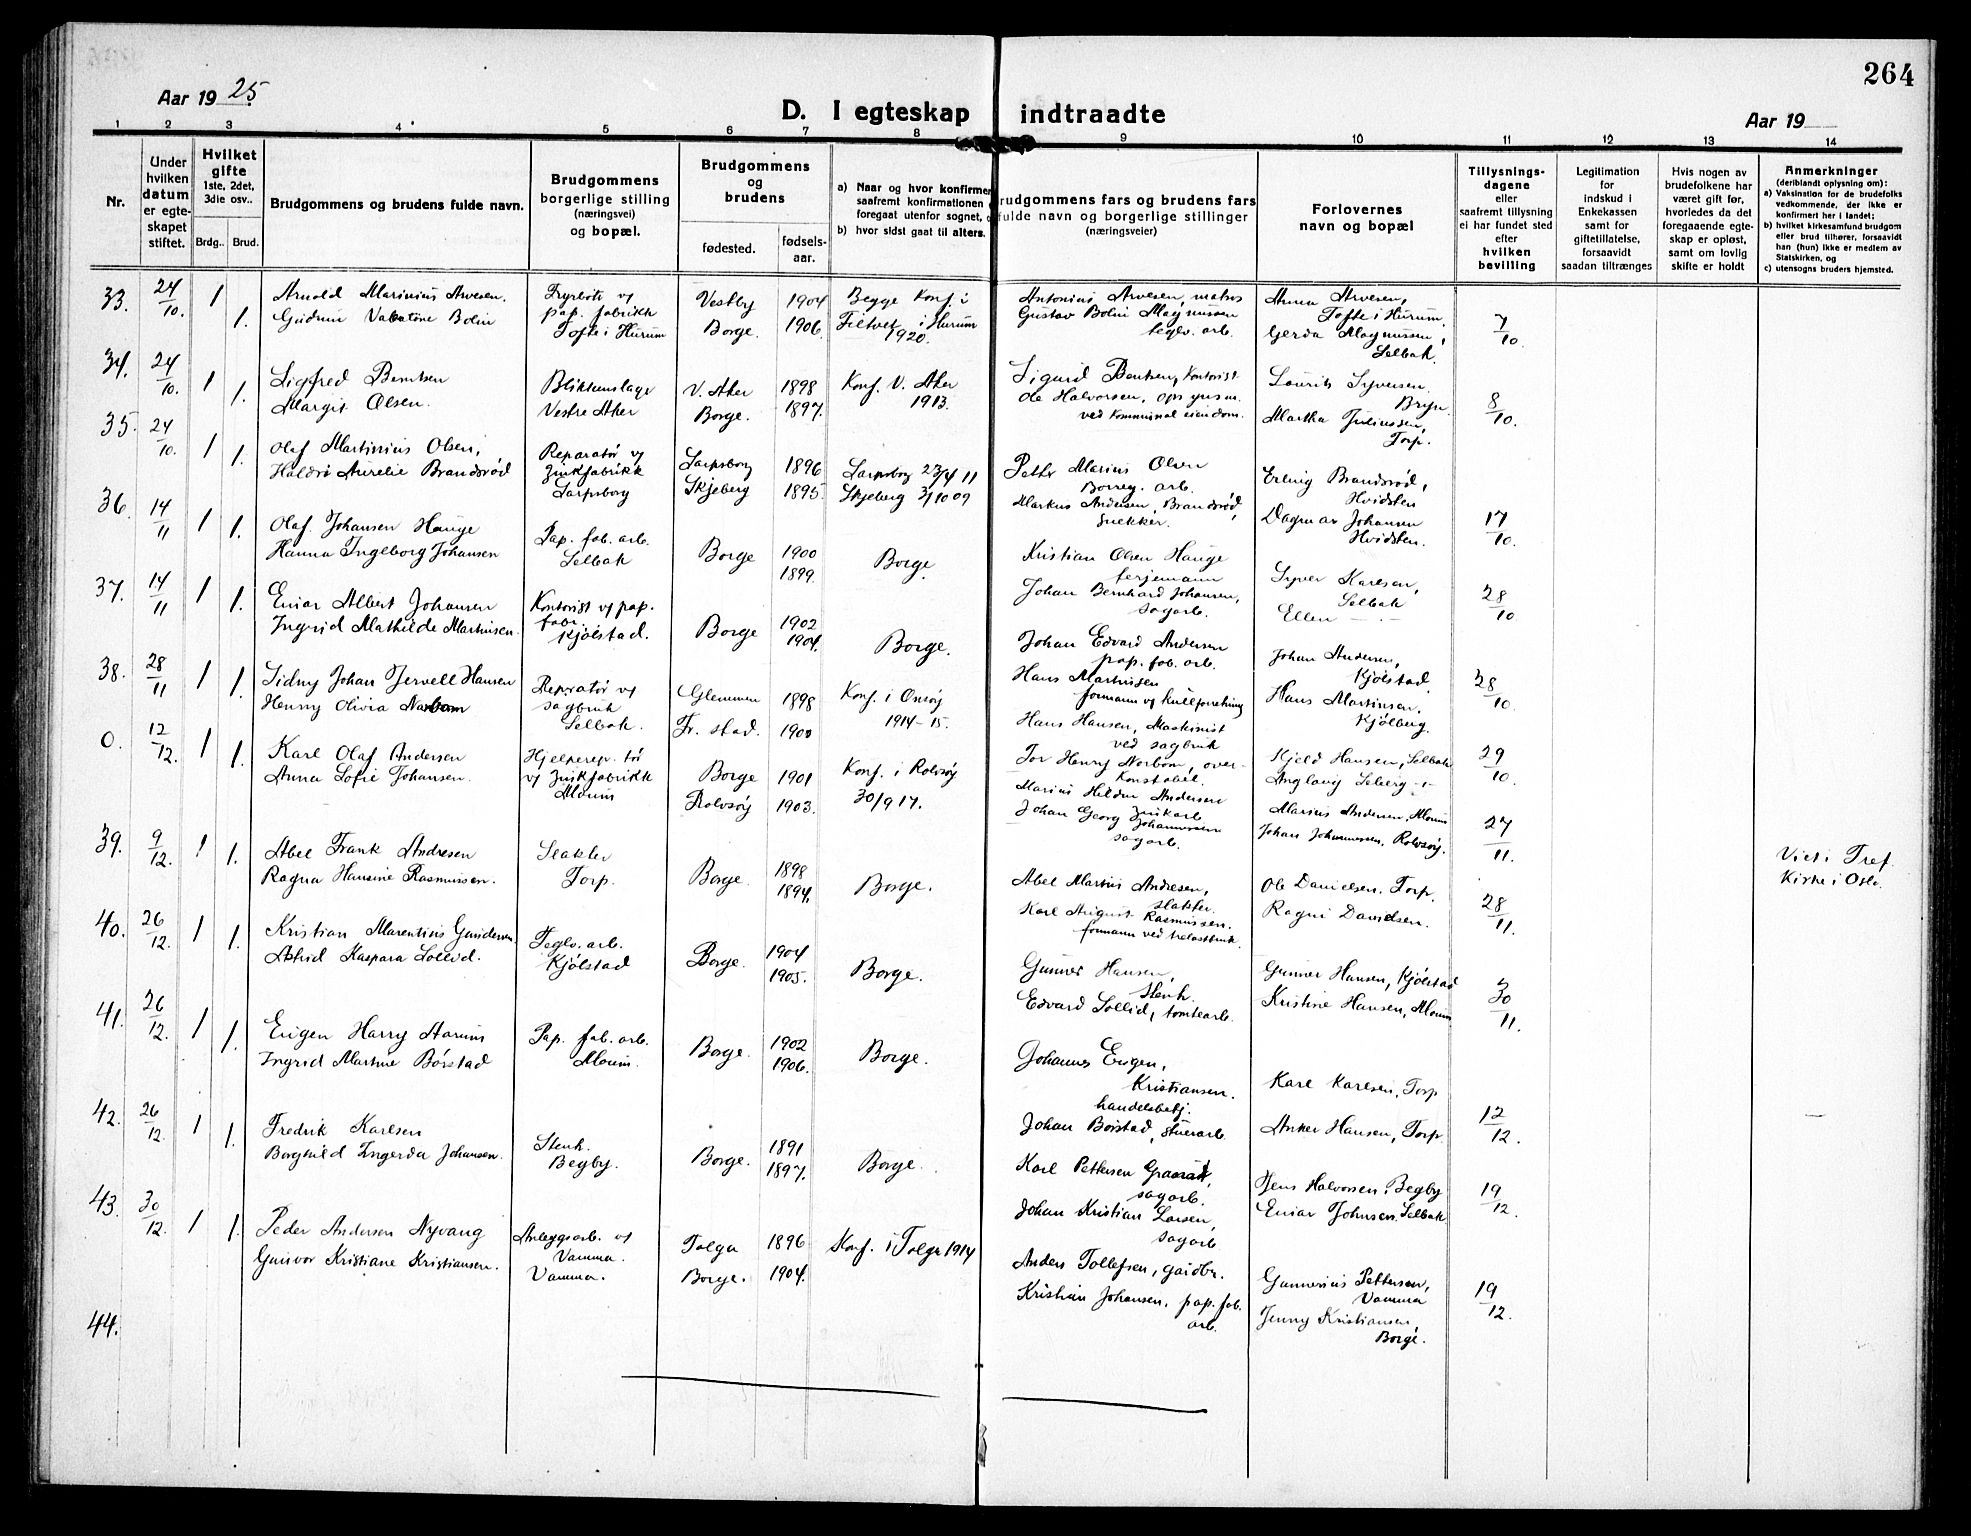 264
Aar 1925
D. I egteskap indtraadte
Aar 19
1 2 3 4 5 6 7 8 9 10 11 12 13 14
Nr.
Under hvilken datum er egteskapet stiftet.
Hvilket gifte
1ste, 2det, 3die osv..
Brdg.. Brud.
Brudgommens og brudens fulde navn.
Brudgommens borgerlige stilling (næringsvei) og bopæl.
Brudgommens og brudens
fødested. fødselsaar.
a) Naar og hvor konfirmer
saafremt konfirmationen
foregaat utenfor sognet,
b) hvor sidst gaat til alters.
rudgommens fars og brudens fars
fulde navn og borgerlige stillinger
(næringsveier)
Forlovernes
navn og bopæl
Tillysningsdagene
eller
saafremt tillysning
ei har fundet sted
efter
hvilken
bevilling
Legitimation
for
indskud i
Enkekassen
samt for
giftetillatelse,
forsaavidt
saadan tiltrænges
Hvis nogen av
brudefolkene har
været gift før,
hvorledes da det
foregaaende egteskap er opløst,
samt om lovlig
skifte er holdt
Anmerkninger
(deriblandt oplysning om):
a) Vaksination for de brudefolks
vedkommende, der ikke er
konfirmert her i landet;
b) hvilket kirkesamfund brudgom
eller brud tilhører, forsaavidt
han (hun) ikke er medlem av
Statskirken, og
c) utensogns bruders hjemsted.
33. 24/10. 1 Arnold Marinius Arvesen. Fyrbøter v/ Vestby 1904 Begge Konf. i Antonius Arvesen, matros Anna Arvesen,
1. Gudrun Valentine Bolin pap. fabrikk Borge. 1906. Filtvet i Hurum Gustav Bolin Magnussen Tofte i Hurum. 7/10.
Tofte i Hurum 1920. teglv. arb. Gerda Magnussen,
Selbak.
34. 24/10. 1 Sigfred Berntsen Blikkenslage V. Aker 1898 Konf. V. Aker Sigurd Bentsen, Kontorist Laurits Syversen
1. Margit Olsen. Vestre Aker Borge. 1897. 1913. Ole Halvorsen, opsynsm. Bryn. 8/10.
ved kommunal eiendom. Martha Juliussen,
Torp.
35. 24/10. 1 Olaf Martinius Olsen, Reparatør v/ Sarpsborg 1896 Sarpsborg 23/4 11 Petter Marius Olsen Erling Brandsrød,
1. Haldis Aurelie Brandsrød Zinkfabrikk Skjeberg 1895. Skjeberg 3/10 09 Borreg. arb. Hvidsten
Sarpsborg Markus Andersen, Brandsrød, Dagmar Johansen 17/10.
snekker. Hvidsten.
36. 14/11 1 Olaf Johansen Hauge Pap. fab. arb. Borge 1900 Borge. Kristian Olsen Hauge Syver Karlsen,
1. Hanna Ingeborg Johansen Selbak 1899. ferjemann Selbak 28/10.
Johan Bernhard Johansen, Ellen — " —
sagarb.
37. 14/11 1 Einar Albert Johansen Kontorist v/ pap. Borge 1902 Borge. Johan Edvard Andersen Johan Andersen,
1. Ingrid Mathilde Martinsen. fabr. 1904. pap. fab. arb. Kjølstad. 28/10.
Kjølstad. Hans Martinsen Hans Martinsen,
formann v/ kullforretning Kjølberg.
38. 28/11 1 Sidny Johan Jervell Hansen Reparatør v/ Glemmen 1898 Konf. i Onsøy Hans Hansen, Maskinist Kjeld Hansen, Selbak 29/10.
1. Henny Olivia Norbom sagbruk Fr. stad. 1900 1914-15. ved sagbruk
Selbak. Tor Henry Norbom, over- Anglaug Seberg -"-
konstabel.
0. 12/12. 1 Karl Olaf Andersen Hjelperep.tør Borge 1901 Konf. i Rolvsøy Marius Hildur Andersen Marius Andersen, Moum 27/11.
1. Anna Sofie Johansen. v/ Zinkfabrikk Rolvsøy 1903. 30/9 17. Zinkarb Johan Johannessen, Rolvsøy.
Moum Johan Georg Johannessen
sagarb.
39. 9/12. 1 Abel Frank Andresen Slakter Borge. 1898 Borge. Abel Martins Andresen, Ole Danielsen, Torp. 28/11. Viet i Tref.
1. Ragna Hansine Rasmussen. Torp. 1894. slakter. Ragni Danielsen. Kirke i Oslo.
Karl August Rasmussen.
formann ved trelastbruk.
40. 26/12. 1 Kristian Marentius Gundersen Teglv. arb. Borge. 1904 Borge. Gunner Hansen, Gunner Hansen, Kjølstad 30/11.
1. Astrid Kaspara Sollid. Kjølstad 1905. Stenh. Kristine Hansen, Moum
Edvard Sollid, tomtearb.
41. 26/12. 1 Eugen Harry Aarum Pap. fab. arb. Borge. 1902 Borge. Johannes Eugen, Karl Karlsen, Torp
1. Ingrid Martine Børstad Moum. 1906. Kristiansen. 12/12. —
handelsbetj. Anker Hansen, Torp.
Johan Børstad, stuerarb.
42. 26/12. 1 Fredrik Karlsen Stenh. Borge. 1891 Borge. Karl Pettersen Graarud, Jens Halvorsen, Begby 19/12.
1. Borghild Ingerda Johansen. Begby. 1897. sagarb. Einar Johnsen. Selbak.
Johan Kristian Larsen,
sagarb.
43. 30/12. 1 Peder Andersen Nyvang Anleggsarb. v/ Tolga 1896 Konf. i Tolga 1914 Anders Tollefsen, gaidbr. Gunnerius Pettersen, 19/12.
1. Gunvor Kristiane Kristiansen. Vamma. Borge. 1904. Kristian Johansen, pap. fab. Vamma
Vamma. arb. Jenny Kristiansen,
Borge.
44.